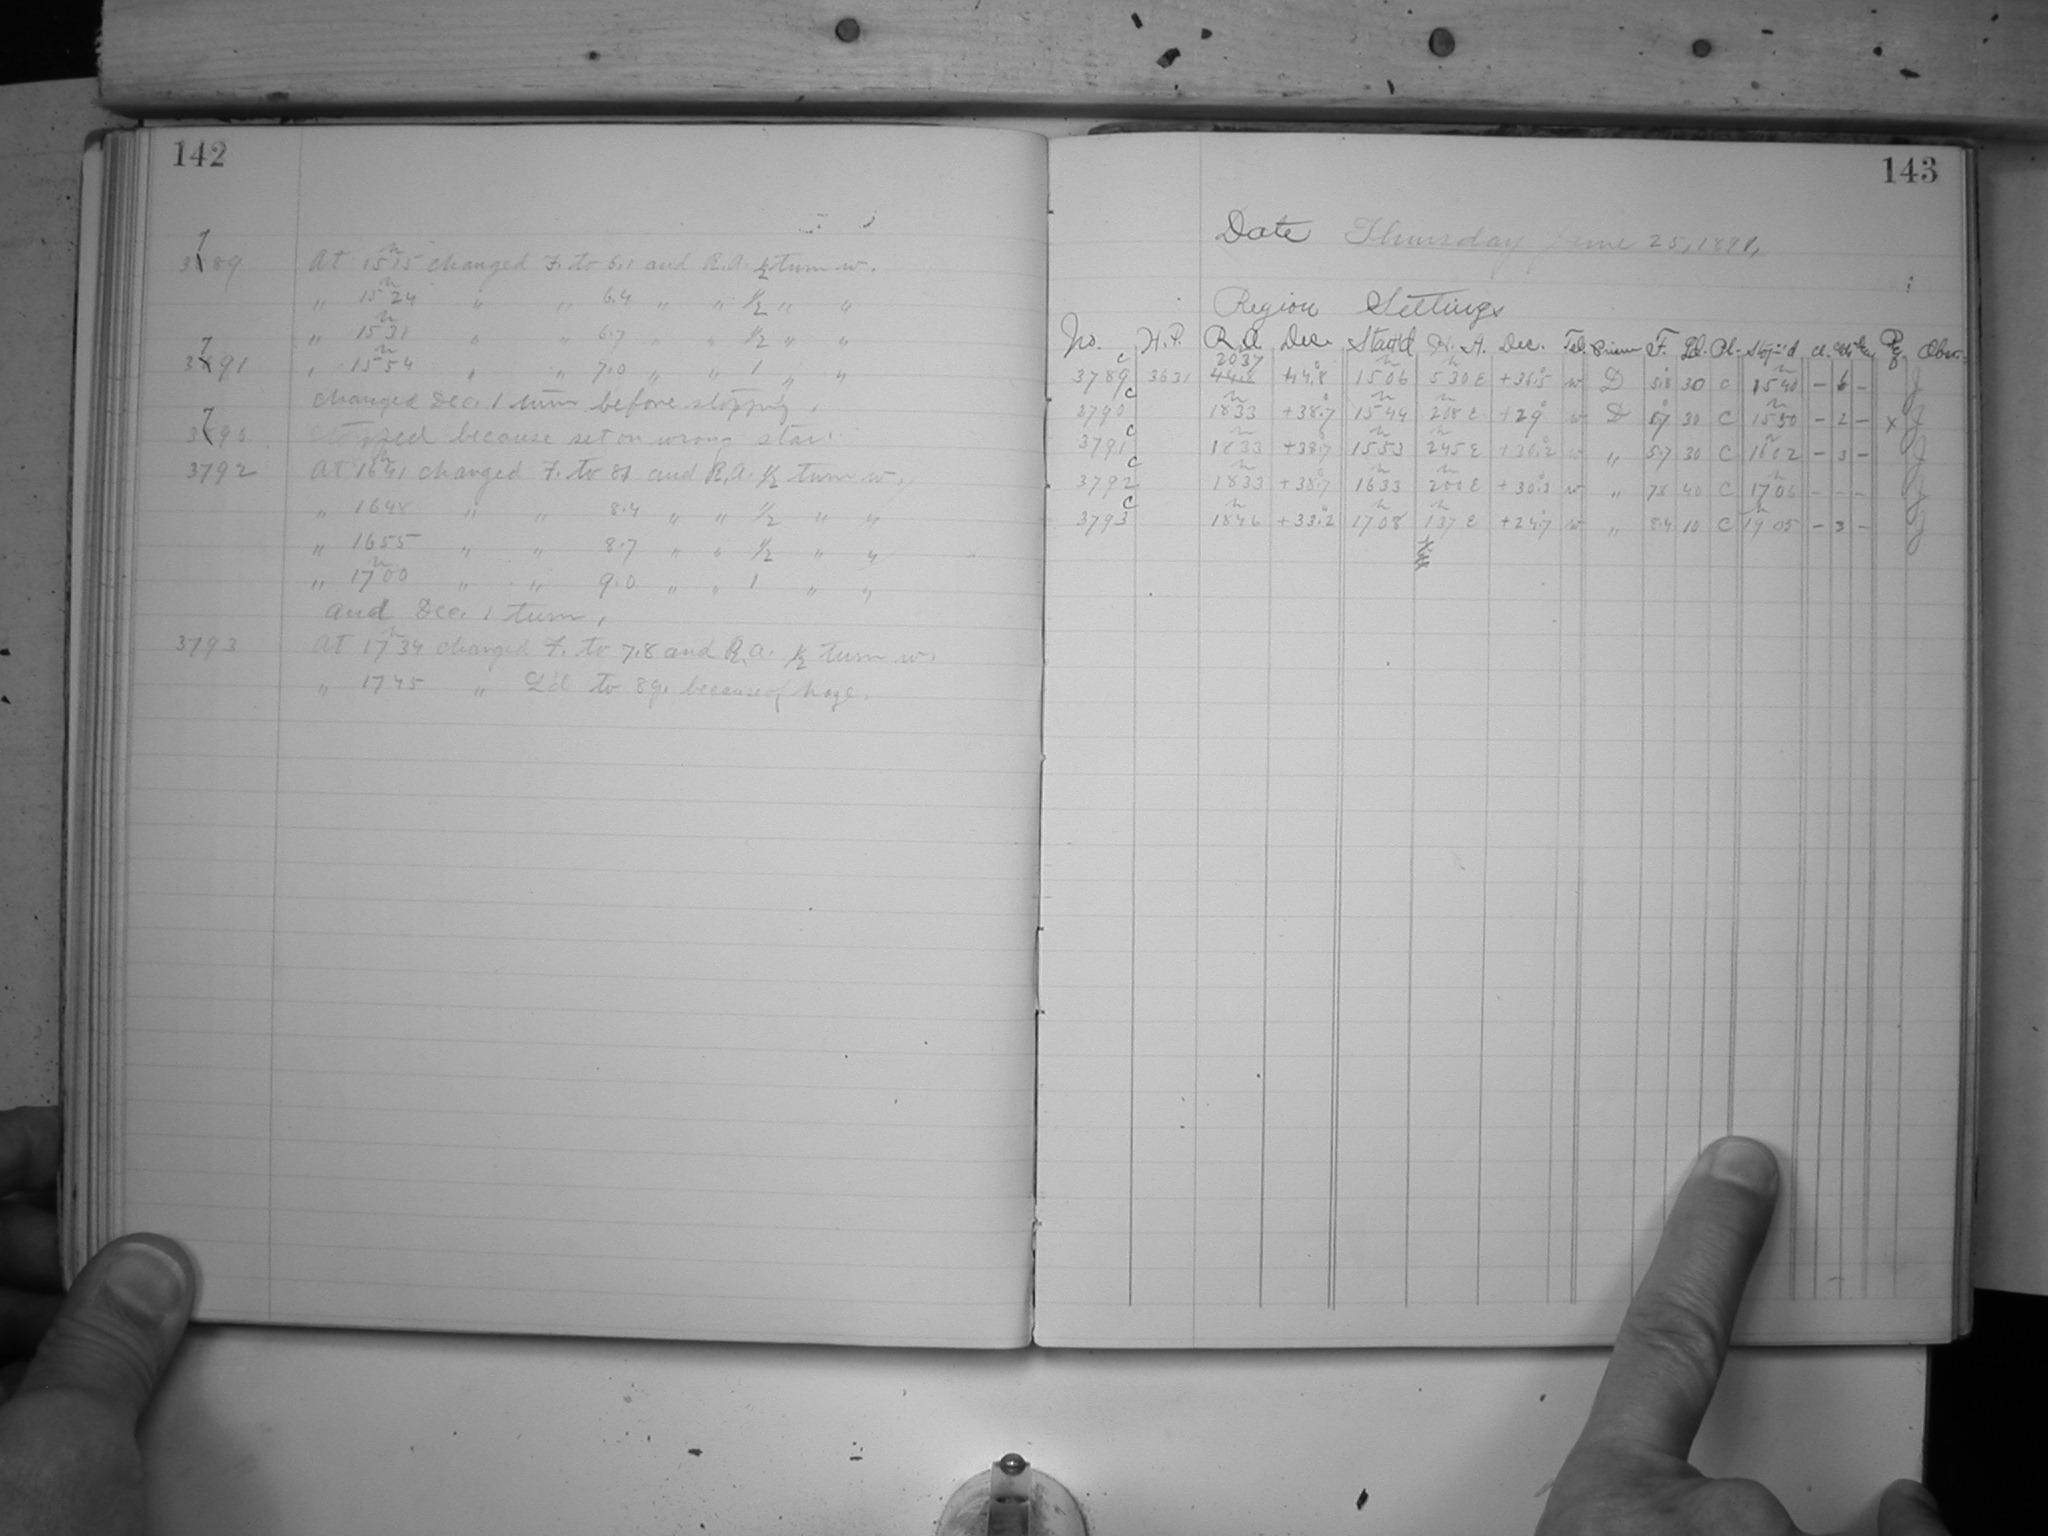 142
3789 At 15h15 changed F. to 6.1 and R.A. ½ turn w.
" 15h24 " " 6.4 " " ½ " "
" 15h31 " " 6.7 " " ½ " "
3791 " 15h54 " " 7.0 " " 1 " "
changed Dec. 1 turn before stopping.
3790 Stopped because set on wrong star.
3792 At 16h41 changed F. to 8.1 and R.A. ½ turn w.
" 1648 " " 8.4 " " ½ " "
" 1655 " " 8.7 " " ½ " "
" 17h00 " " 9.0 " " 1 " "
and Dec. 1 turn.
3793 At 17h34 changed F. to 7.8 and R.A. ½ turn w.
" 1745 " L'd to 89. because of haze.
143
Date Thursday June 25, 1891.
Region Settings
No. H.P. R.A. Dec. Start'd H.A. Dec. Tel. Prism F. L'd. Pl. Stop'd Cl.
2037
3789c 3631 44.8 +44.8 1506 530 E +36.5 w D 5.8 30 C 1540 – 6 – J
3790c 1833 +38.7 1544 258 E +29 w D 5.7 30 C 1550 – 2 – x J
3791c 1833 +38.7 1553 245 E +30.2 w " 5.7 30 C 1602 – 3 – J
3792c 1833 +38.7 1633 200 E +30.3 w " 7.8 40 C 1706 – – – J
3793c 1846 +33.2 1708 137 E +24.7 w " 8.4 10 C 1905 – 3 – J